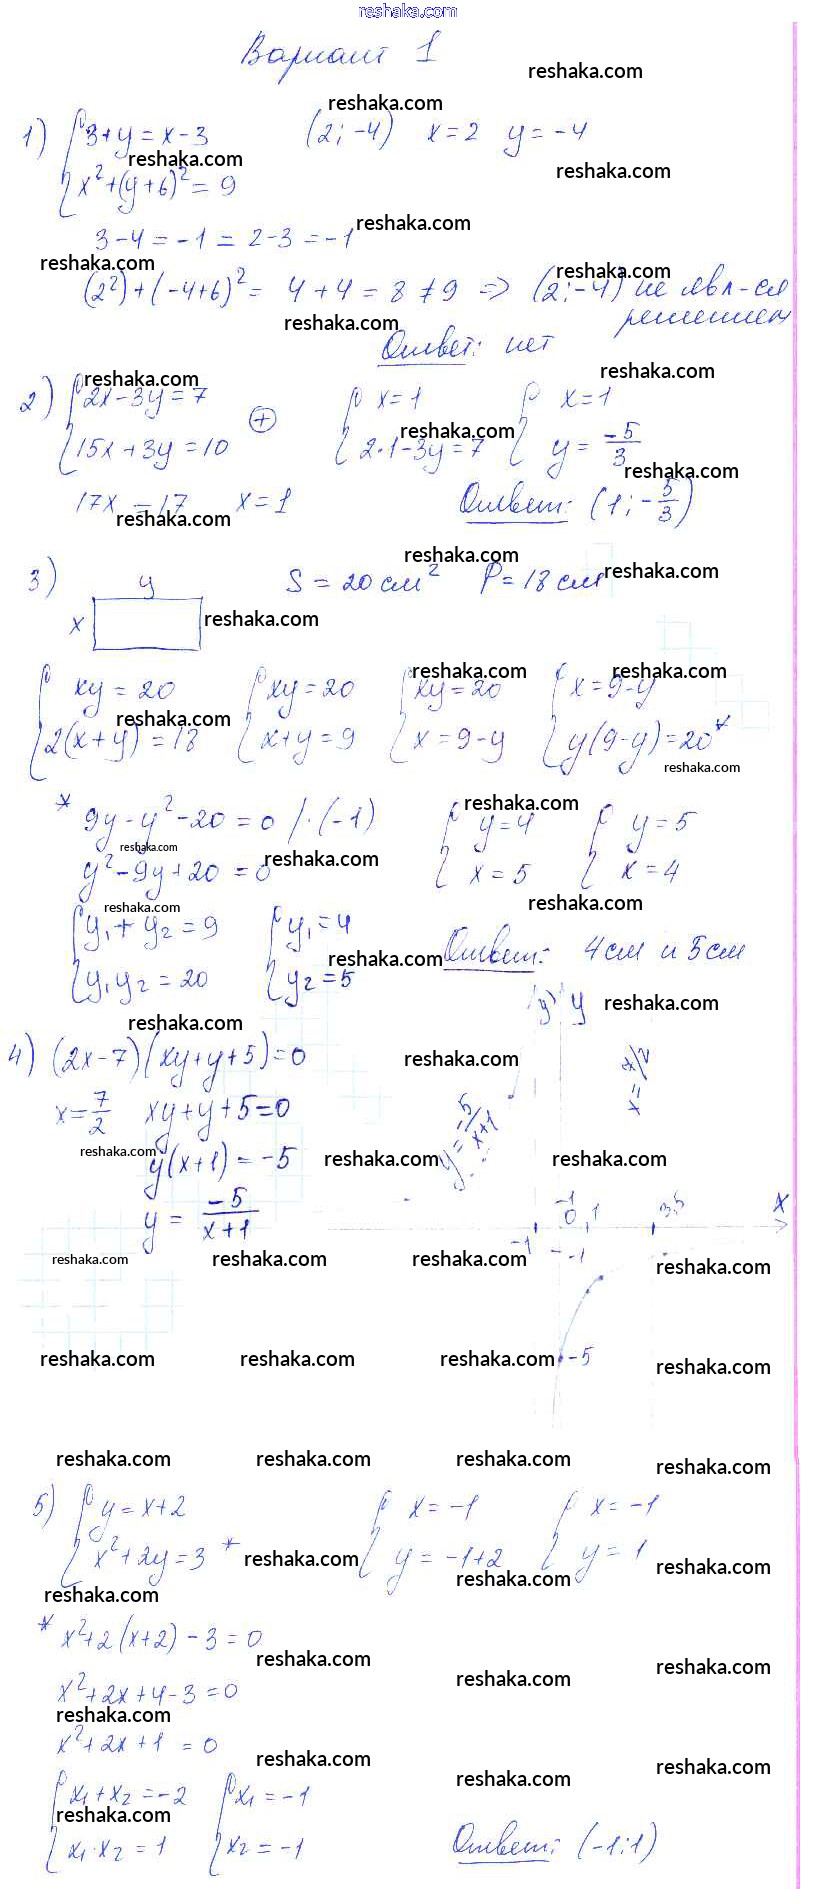 reshaka.com
Вариант 1
reshaka.com
reshaka.com
1) { 3+y=x-3 (2; -4) x=2 y=-4
reshaka.com reshaka.com
x²+(y+6)²=9
3-4=-1=2-3=-1 reshaka.com
reshaka.com reshaka.com
(2²)+(-4+6)²= 4+4=8≠9 => (2;-4) не явл-ся
решением
reshaka.com
Ответ: нет
reshaka.com reshaka.com
2) { 2x-3y=7 ⊕ { x=1 { x=1
15x+3y=10 2·1-3y=7 y=-5/3
reshaka.com reshaka.com
17x=17 x=1 Ответ: (1;-5/3)
reshaka.com
reshaka.com reshaka.com
3) y S=20 см² P=18 см
x reshaka.com
reshaka.com reshaka.com
{ xy=20 { xy=20 { xy=20 { x=9-y
reshaka.com
2(x+y)=18 x+y=9 x=9-y y(9-y)=20*
reshaka.com
reshaka.com
* 9y-y²-20=0 /·(-1) { y=4 { y=5
reshaka.com reshaka.com
y²-9y+20=0 x=5 x=4
reshaka.com reshaka.com
{ y₁+y₂=9 { y₁=4 Ответ: 4см и 5см
reshaka.com
y₁y₂=20 y₂=5
(y) y reshaka.com
reshaka.com
4) (2x-7)(xy+y+5)=0 reshaka.com
x=7/2 xy+y+5=0 y=-5/x+1 x=7/2
reshaka.com reshaka.com reshaka.com
y(x+1)=-5
y=-5/x+1
-1 0 1 3,5 x
-1 -1
reshaka.com reshaka.com reshaka.com reshaka.com
-5
reshaka.com reshaka.com reshaka.com reshaka.com
reshaka.com reshaka.com reshaka.com reshaka.com
5) { y=x+2 { x=-1 { x=-1
x²+2y=3 * y=-1+2 y=1
reshaka.com reshaka.com reshaka.com
reshaka.com
* x²+2(x+2)-3=0
reshaka.com reshaka.com reshaka.com
x²+2x+4-3=0
reshaka.com
x²+2x+1=0
reshaka.com reshaka.com reshaka.com
{ x₁+x₂=-2 { x₁=-1
reshaka.com
x₁·x₂=1 x₂=-1 Ответ: (-1;1)